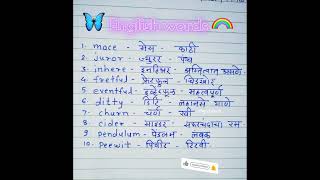 English words
1. mace - मेस - काठी
2. juror - ज्युरर - पंच
3. inhere - इनहिअर - अस्तित्वात असणे
4. fretful - फ्रेटफूल - चिडखोर
5. eventful - इव्हेंटफूल - महत्वपूर्ण
6. ditty - डिटि - लहानसे गाणे
7. churn - चर्न - रवी
8. cider - साइडर - सफरचंदाचा रस
9. pendulum - पेंडलम - लंबक
10. peewit - पिवीट - टिटवी